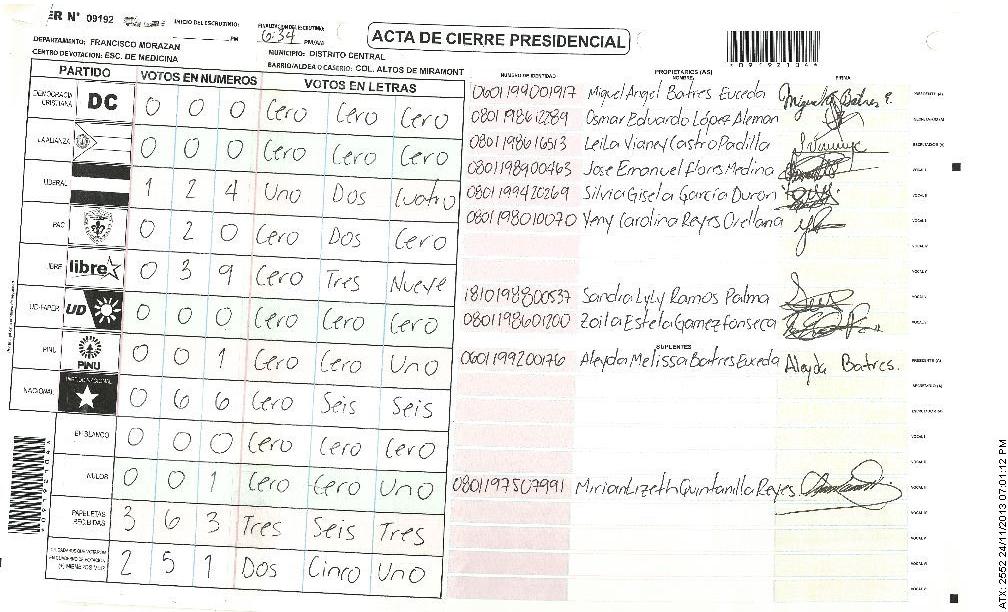 ER N° 09192
INICIO DEL ESCRUTINIO:
PM
FINALIZACION DEL ESCRUTINIO:
6:34 PM/AM
ACTA DE CIERRE PRESIDENCIAL
*09192104*
DEPARTAMENTO: FRANCISCO MORAZAN
MUNICIPIO: DISTRITO CENTRAL
CENTRO DE VOTACION: ESC. DE MEDICINA
BARRIO/ALDEA O CASERIO: COL. ALTOS DE MIRAMONT
PARTIDO VOTOS EN NUMEROS VOTOS EN LETRAS
DEMOCRACIA CRISTIANA DC 0 0 0 Cero Cero Cero
LA ALIANZA 0 0 0 Cero Cero Cero
LIBERAL 1 2 4 Uno Dos Cuatro
PAC 0 2 0 Cero Dos Cero
LIBRE libre 0 3 9 Cero Tres Nueve
UD-FAPER UD 0 0 0 Cero Cero Cero
PINU PINU 0 0 1 Cero Cero Uno
NACIONAL PARTIDO NACIONAL 0 6 6 Cero Seis Seis
EN BLANCO 0 0 0 Cero Cero Cero
NULOS 0 0 1 Cero Cero Uno
PAPELETAS RECIBIDAS 3 6 3 Tres Seis Tres
CIUDADANOS QUE VOTARON 2 5 1 Dos Cinco Uno
NUMERO DE IDENTIDAD PROPIETARIOS (AS) NOMBRE FIRMA
0601199001917 Miguel Angel Batres Euceda Miguel A Batres E. PRESIDENTE (A)
0801198612289 Osmar Eduardo López Aleman SECRETARIO (A)
0801198616513 Leila Vianey Castro Padilla ESCRUTADOR (A)
0801198900463 Jose Emanuel Flores Medina VOCAL I
0801199420269 Silvia Gisela García Duron VOCAL II
0801198010070 Yeny Carolina Reyes Orellana
1810198800537 Sandra Lyly Ramos Palma
0801198601200 Zoila Estela Gamez Fonseca
SUPLENTES
0601199200176 Aleyda Melissa Batres Euceda Aleyda Batres. PRESIDENTE (A)
SECRETARIO (A)
ESCRUTADOR (A)
0801197507991 Mirian Lizeth Quintanilla Reyes
ATX: 2552 24/11/2013 07:01:12 PM